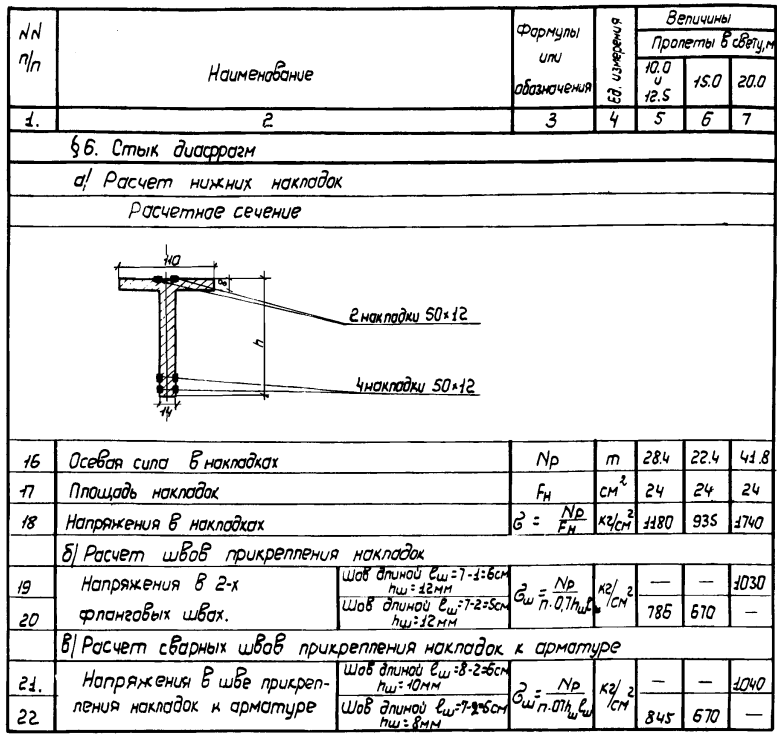 NN п/п
Наименование
Формулы или обозначения
Ед. измерения
Величины
Пролеты в свету, м
10.0 и 12.5
15.0
20.0
1. 2 3 4 5 6 7
§6. Стык диафрагм
а/ Расчет нижних накладок
Расчетное сечение
110
8
2 накладки 50×12
h
4 накладки 50×12
14
16 Осевая сила в накладках Nр т 28.4 22.4 41.8
17 Площадь накладок Fн см² 24 24 24
18 Напряжения в накладках σ = Nр/Fн кг/см² 1180 935 1740
б/ Расчет швов прикрепления накладок
19 Напряжения в 2-х
20 фланговых швах.
Шов длиной ℓш=7-1=6см
hш=12мм
Шов длиной ℓш=7-2=5см
hш=12мм
σш = Nр/п.0,7hшℓш кг/см²
— — 1030
785 670 —
в/ Расчет сварных швов прикрепления накладок к арматуре
21. Напряжения в шве прикреп-
22 ления накладок к арматуре
Шов длиной ℓш=8-2=6см
hш=10мм
Шов длиной ℓш=7-2=5см
hш=8мм
σш = Nр/п.07hшℓш кг/см²
— — 1040
845 670 —